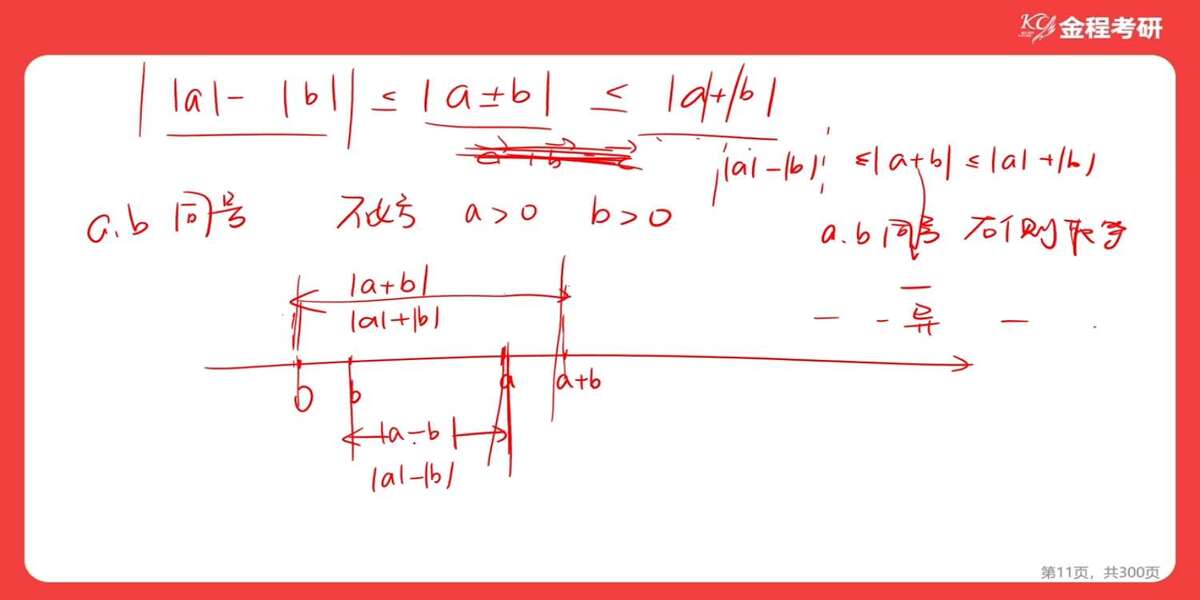 KC 金程考研
||a|- |b|| ≤ |a±b| ≤ |a|+|b|
||a|-|b|| ≤|a+b| ≤|a|+|b|
a.b 同号 不妨 a>0 b>0
a.b同号 右侧取等
|a+b|
|a|+|b|
- - 异 -
0 b a a+b
|a-b|
|a|-|b|
第11页，共300页